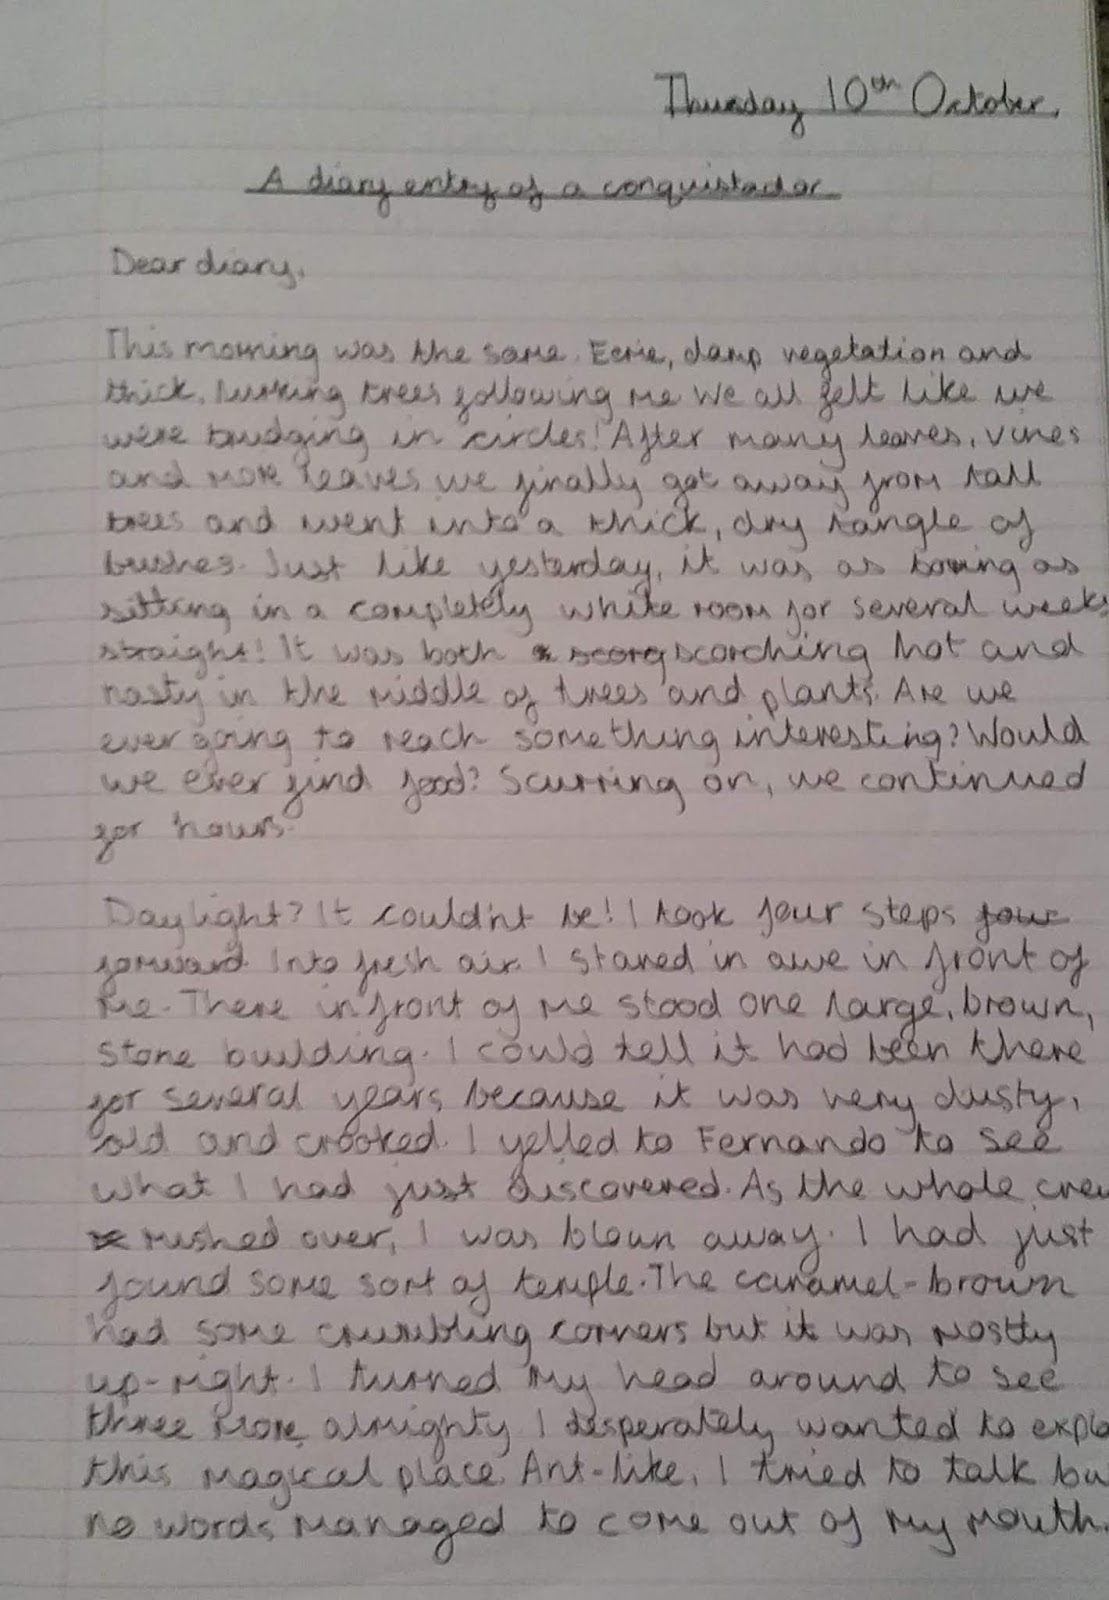 Thursday 10th October.
A diary entry of a conquistador
Dear diary,
This morning was the same. Eerie, damp vegetation and
thick, lurking trees following me We all felt like we
were trudging in circles! After many leaves, vines
and more leaves we finally got away from tall
trees and went into a thick, dry tangle of
bushes. Just like yesterday, it was as boring as
sitting in a completely white room for several weeks
straight! It was both scorching hot and
nasty in the middle of trees and plants. Are we
ever going to reach something interesting? Would
we ever find food? Scurring on, we continued
for hours.
Daylight? It couldn't be! I took four steps four
forward. Into fresh air. I stared in awe in front of
me. There in front of me stood one large, brown,
stone building. I could tell it had been there
for several years because it was very dusty,
old and crooked. I yelled to Fernando to see
what I had just discovered. As the whole crew
rushed over, I was blown away. I had just
found some sort of temple. The caramel-brown
had some crumbling corners but it was mostly
up-right. I turned my head around to see
three more almighty I desperately wanted to explo
this magical place. Ant-like, I tried to talk bu
no words managed to come out of my mouth.